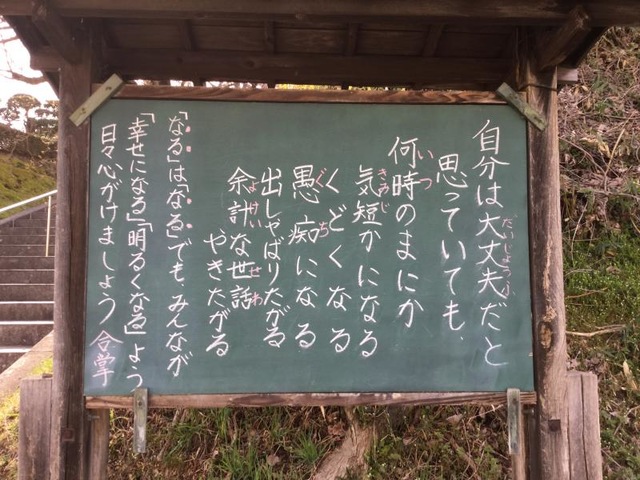 自分は大丈夫だと
思っていても、
何時のまにか
気短かになる
くどくなる
愚痴になる
出しゃばりたがる
余計な世話
やきたがる
「なる」は「なる」でも、みんなが
「幸せになる」「明るくなる」よう
日々心がけましょう 合掌
だいじょうぶ
いつ
きみじ
ぐち
よけい
せわ